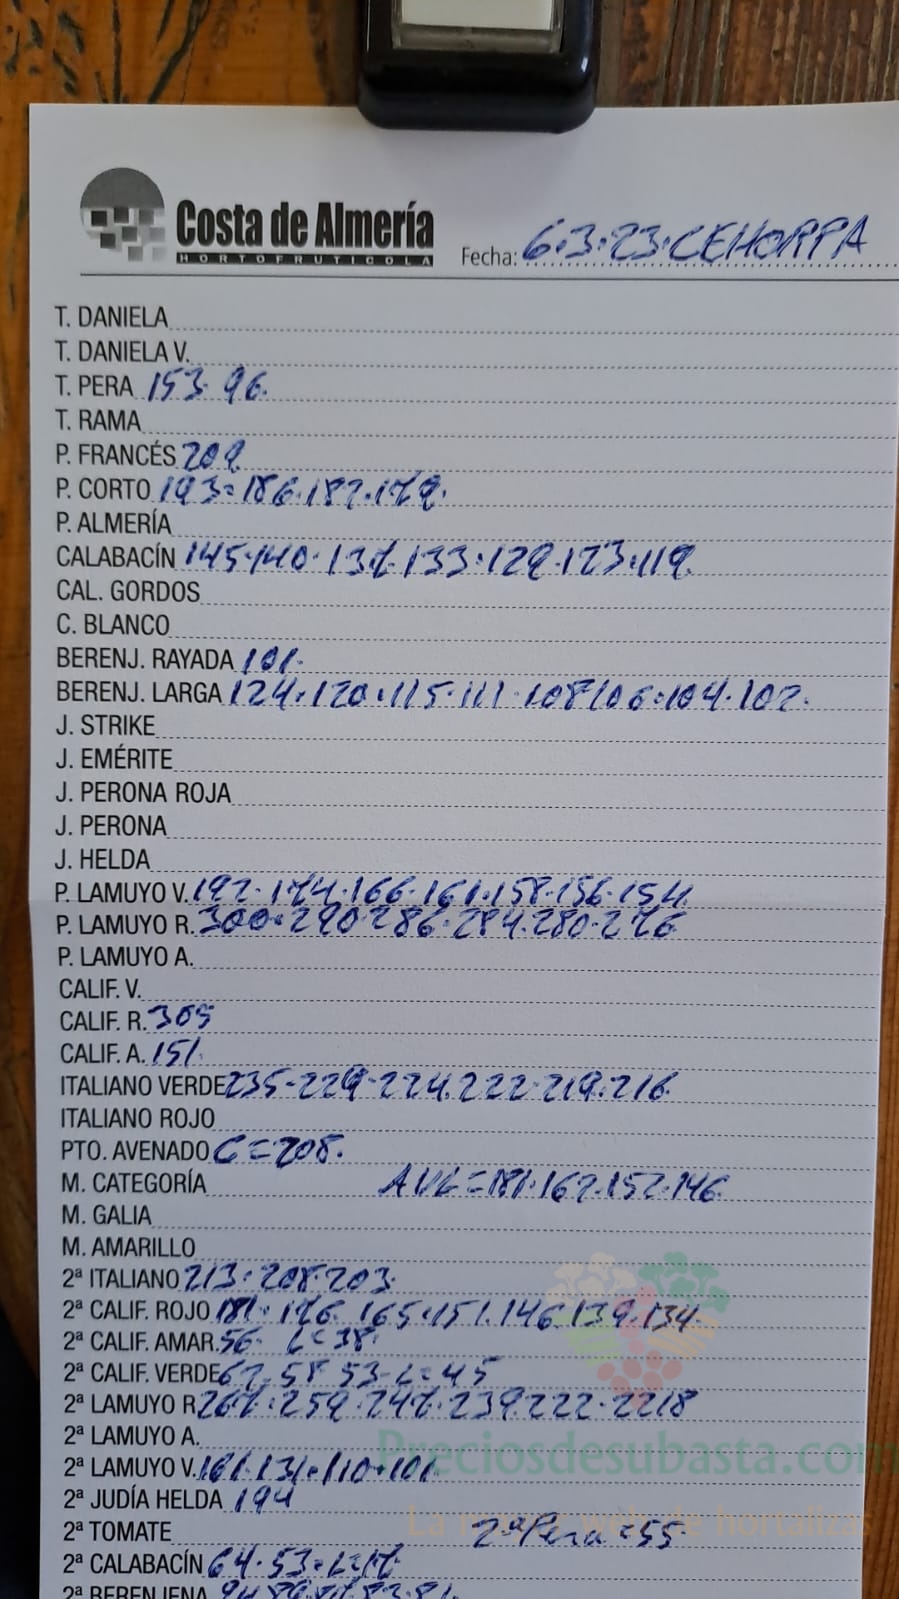 Costa de Almería
HORTOFRUTICOLA
Fecha: 6.3.23.CEHORPA
T. DANIELA
T. DANIELA V.
T. PERA 153 96.
T. RAMA
P. FRANCÉS 209
P. CORTO 193=186.182.179.
P. ALMERÍA
CALABACÍN 145.140.137.133.129.123.119.
CAL. GORDOS
C. BLANCO
BERENJ. RAYADA 101.
BERENJ. LARGA 124.120.115.111.108 106.104.102.
J. STRIKE
J. EMÉRITE
J. PERONA ROJA
J. PERONA
J. HELDA
P. LAMUYO V. 192.174.166.161.158.156.154
P. LAMUYO R. 300.290 286.284.280.276
P. LAMUYO A.
CALIF. V.
CALIF. R. 305
CALIF. A. 151.
ITALIANO VERDE 235-229-224.222.219.216.
ITALIANO ROJO
PTO. AVENADO C=208.
M. CATEGORÍA 181.162.152.146.
M. GALIA
M. AMARILLO
2ª ITALIANO 213.208.203.
2ª CALIF. ROJO 181.176.165.151.146.139.134.
2ª CALIF. AMAR. 56. L=38.
2ª CALIF. VERDE 62.58 53-L=45
2ª LAMUYO R 267.259.247.239 222.2218
2ª LAMUYO A.
Preciosdesubasta.com
2ª LAMUYO V. 161.131.110.101
2ª JUDÍA HELDA 194
La mayor web de hortalizas
2ª TOMATE 2ª Pera=55
2ª CALABACÍN 64.53=L=17
2ª BERENJENA